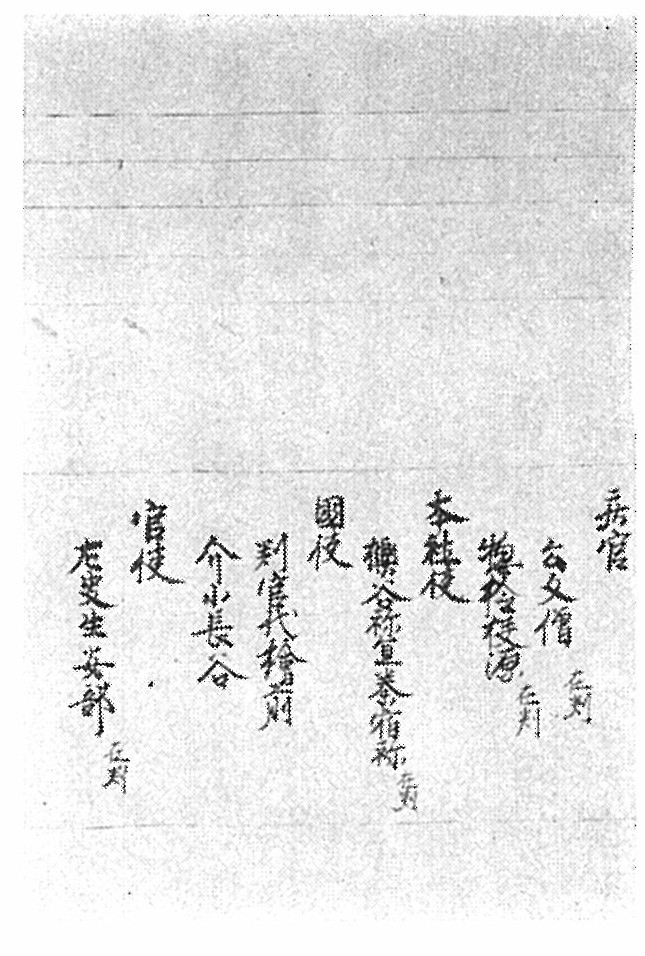 庄官
公文僧 在判
惣檢校源 在判
本社使
櫟谷祢宜秦宿祢 在判
國使
判官代檜前
介小長谷
官使
左史生安部 在判